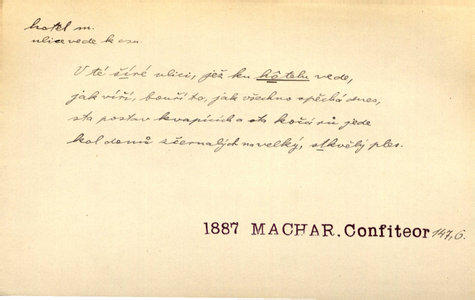 hotel m.
ulice vede k čemu
V té šíré ulici, jež ku hôtelu vede,
jak víří, bouří to, jak všechno spěchá dnes,
sto postav kvapících a sto kočárů jede
kol domů zčernalých na velký, skvělý ples.
1887 MACHAR. Confiteor 147,6.